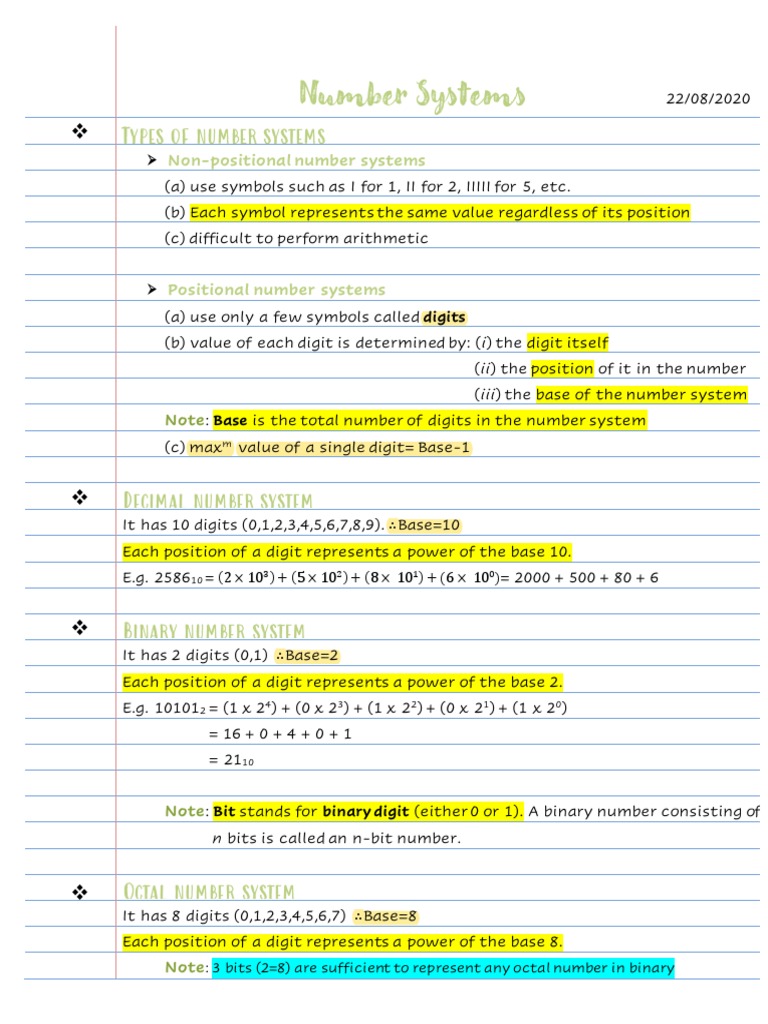 Number Systems
22/08/2020
❖ Types of number systems
➢ Non-positional number systems
(a) use symbols such as I for 1, II for 2, IIIII for 5, etc.
(b) Each symbol represents the same value regardless of its position
(c) difficult to perform arithmetic
➢ Positional number systems
(a) use only a few symbols called digits
(b) value of each digit is determined by: (i) the digit itself
(ii) the position of it in the number
(iii) the base of the number system
Note: Base is the total number of digits in the number system
(c) maxᵐ value of a single digit= Base-1
❖ Decimal number system
It has 10 digits (0,1,2,3,4,5,6,7,8,9). ∴Base=10
Each position of a digit represents a power of the base 10.
E.g. 2586₁₀ = (2 × 10³) + (5 × 10²) + (8 × 10¹) + (6 × 10⁰)= 2000 + 500 + 80 + 6
❖ Binary number system
It has 2 digits (0,1) ∴Base=2
Each position of a digit represents a power of the base 2.
E.g. 10101₂ = (1 x 2⁴) + (0 x 2³) + (1 x 2²) + (0 x 2¹) + (1 x 2⁰)
= 16 + 0 + 4 + 0 + 1
= 21₁₀
Note: Bit stands for binary digit (either 0 or 1). A binary number consisting of
n bits is called an n-bit number.
❖ Octal number system
It has 8 digits (0,1,2,3,4,5,6,7) ∴Base=8
Each position of a digit represents a power of the base 8.
Note: 3 bits (2=8) are sufficient to represent any octal number in binary